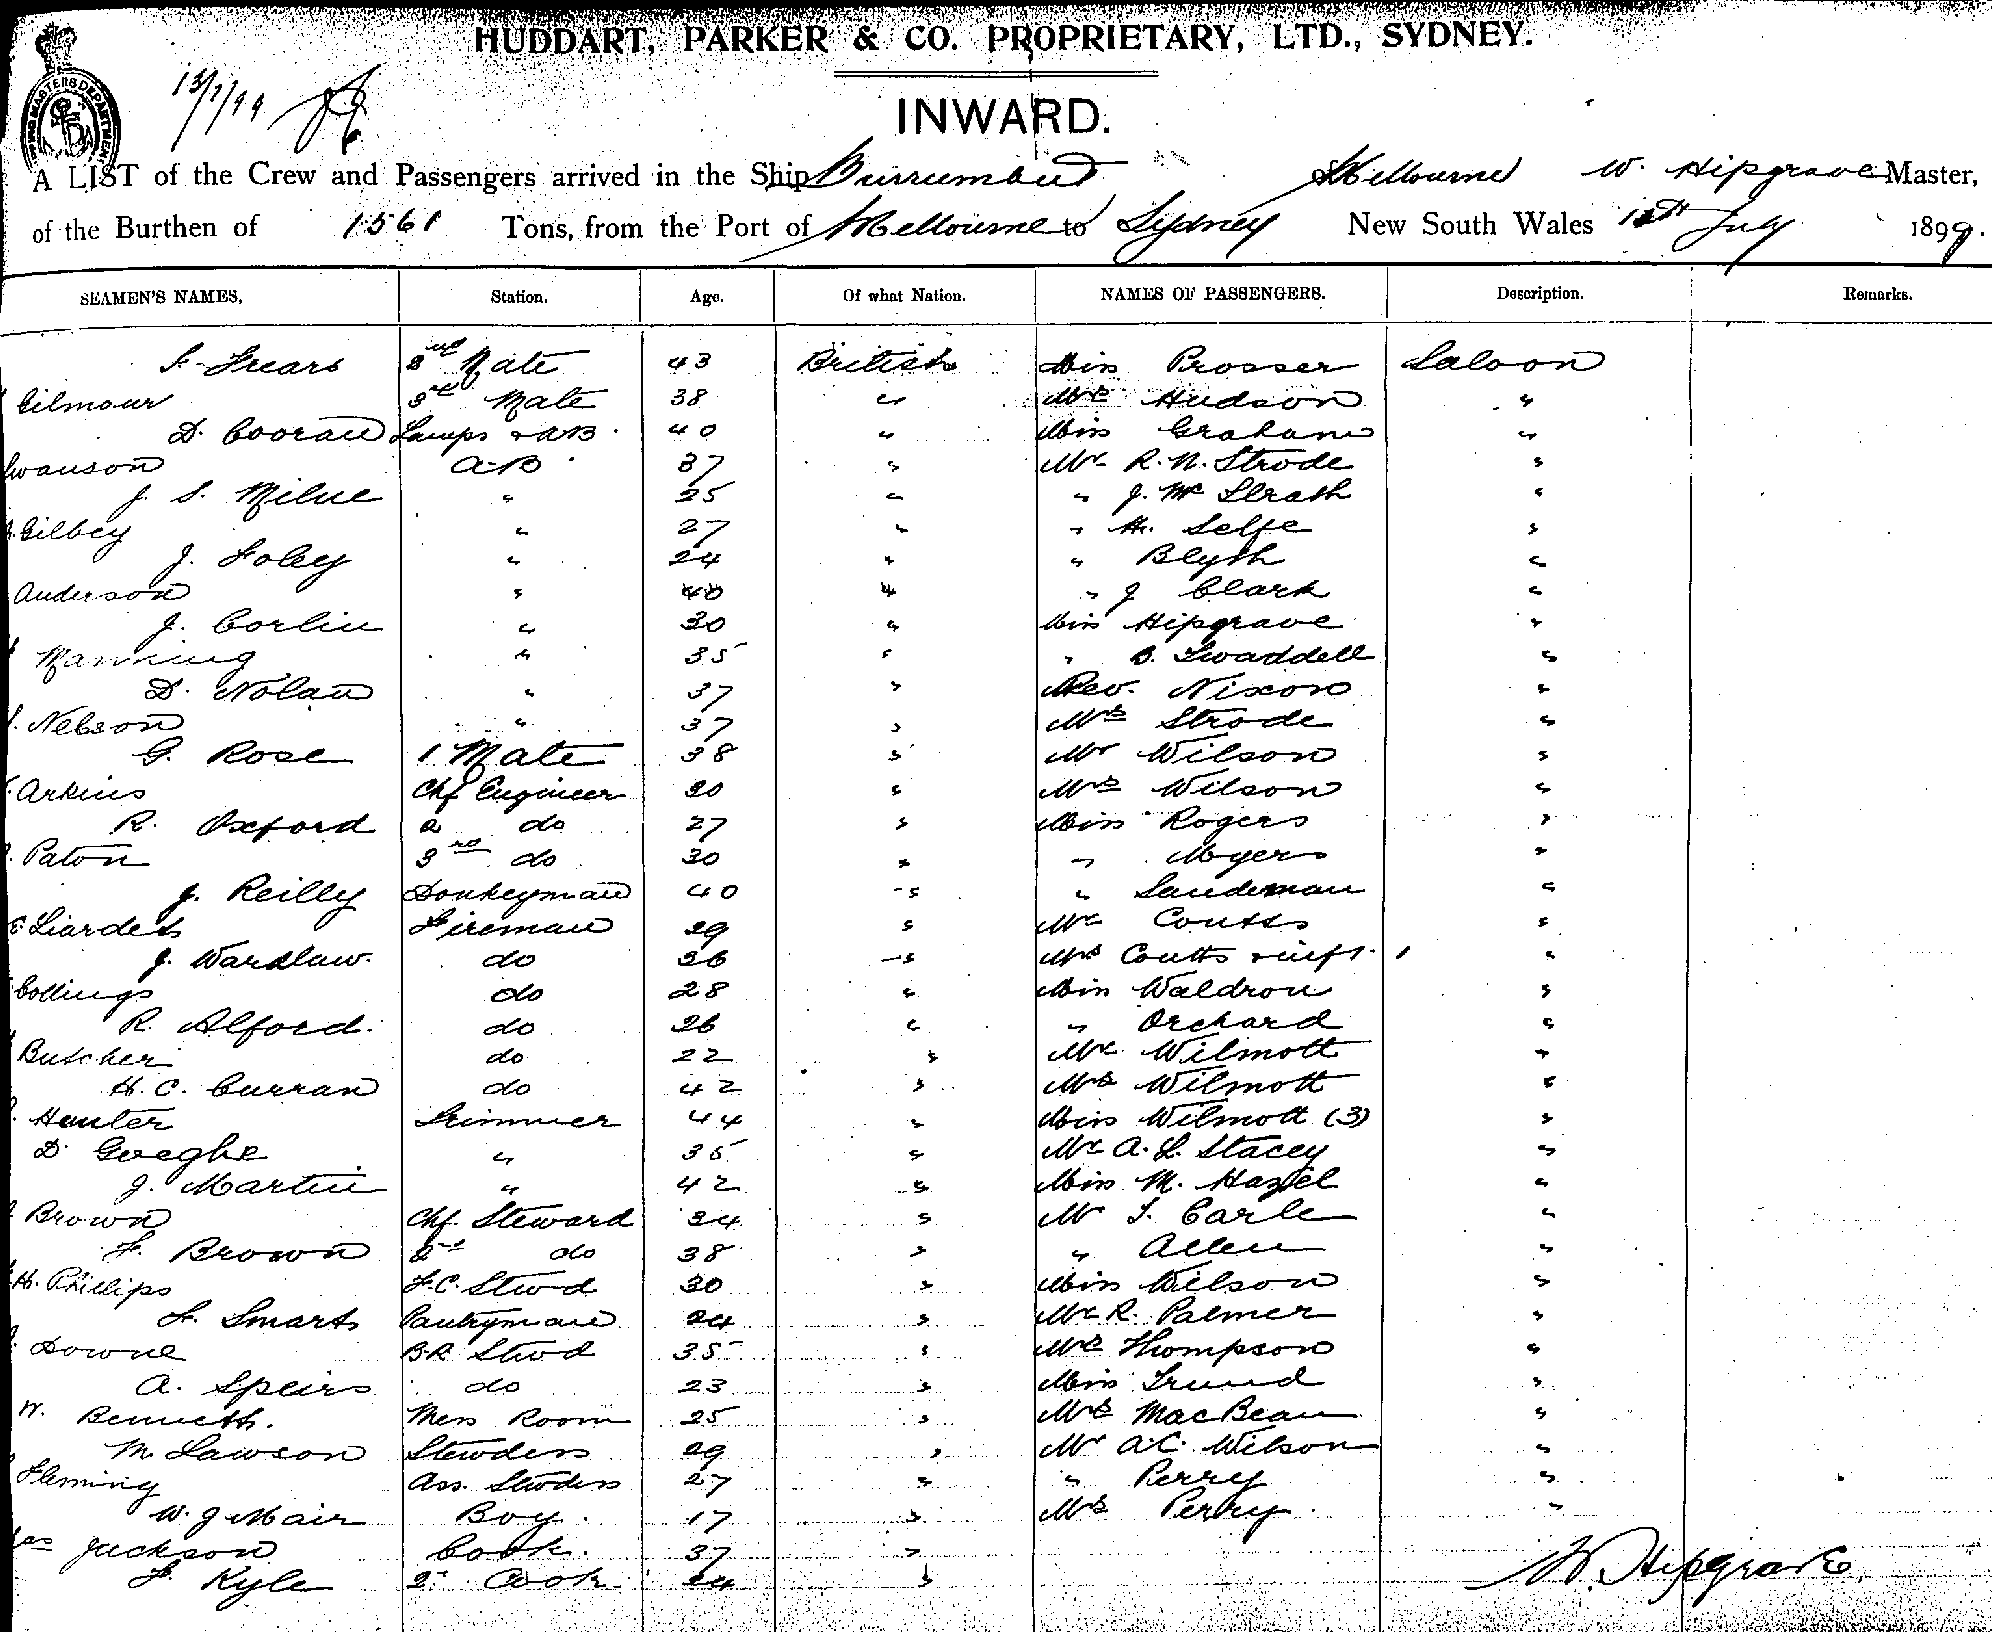 HUDDART, PARKER & CO. PROPRIETARY, LTD., SYDNEY.
13/7/99
INWARD.
A LIST of the Crew and Passengers arrived in the Ship Burrumbeet of Melbourne W. Hipgrave Master,
of the Burthen of 1561 Tons, from the Port of Melbourne to Sydney New South Wales 13th July 1899.
SEAMEN'S NAMES, Station. Age. Of what Nation. NAMES OF PASSENGERS. Description. Remarks.
Mate 43 British Miss Prosser Saloon
Gilmour 3rd Mate 38 " Mrs Hudson "
D. Cooran Lamps & AB 40 " Miss Graham "
Swanson A.B 37 " Mr R. N. Strode "
J. S. Milne " 25 " " J. Mc Strath "
Gilbey " 27 " " H. Selfe "
J. Foley " 24 " " Blyth "
Anderson " 40 " " J Clark "
J. Corlin " 30 " Miss Hipgrave "
Manning " 35 " " B. Twaddell "
D. Nolan " 37 " Rev. Nixon "
Nelson " 37 " Mrs Strode "
G. Rose 1 Mate 38 " Mr Wilson "
Arkins Chf Engineer 30 " Mrs Wilson "
R. Oxford 2 do 27 " Miss Rogers "
Paton 3rd do 30 " " Myers "
J. Reilly Donkeyman 40 " " Sandeman "
E Liardet Fireman 29 " Mr Coutts "
J. Wardlaw. do 36 " Mrs Coutts & inft. "
Collings do 28 " Miss Waldron "
R. Alford. do 26 " " Orchard "
Butcher do 22 " Mr Wilmott "
H. C. Curran do 42 " Mrs Wilmott "
Hunter Trimmer 44 " Miss Wilmott (3) "
D. Goeghe " 35 " Mr A. L. Stacey "
J. Martin " 42 " Miss M. Hazel "
Brown Chf. Steward 34 " Mr T. Carle "
F. Brown 2nd do 38 " " Allen "
H. Phillips F.C. Stwd 30 " Miss Wilson "
F. Smart Pantryman 24 " Mr R. Palmer "
Downe B.R. Stwd 35 " Mrs Thompson "
A. Speirs do 23 " Miss Trund "
W. Bennett. Mess Room 25 " Mrs MacBean "
M Lawson Stewdess 29 " Mr A.C. Wilson "
Fleming Ass. Stewdess 27 " " Perry "
W. J Mair Boy. 17 " Mrs Perry. "
Jas Jackson Cook. 37 "
F. Kyle 2nd Cook 24 "
W. Hipgrave.